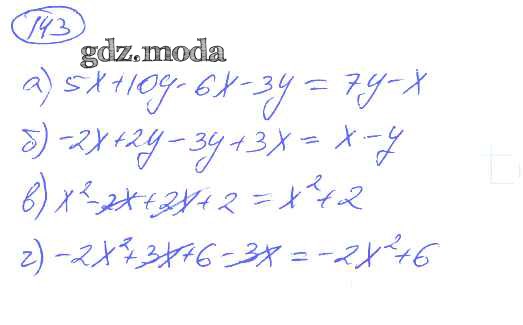 143
gdz.moda
а) 5x+10y-6x-3y = 7y-x
б) -2x+2y-3y+3x = x-y
в) x²-2x+2x+2 = x²+2
г) -2x²+3x+6-3x = -2x²+6